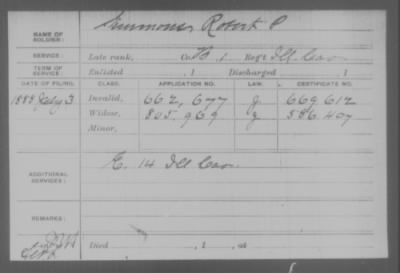 NAME OF SOLDIER: Simmons, Robert P
SERVICE: Late rank, Co. H, 1 Reg't Ill Cav
TERM OF SERVICE: Enlisted , 1 Discharged , 1
DATE OF FILING. CLASS. APPLICATION NO. LAW. CERTIFICATE NO.
July 3 Invalid, 662,677 J 669.612
Widow, 805.969 J 586.407
Minor,
ADDITIONAL SERVICES: E. 14 Ill Cav
REMARKS:
Died , 1 , at